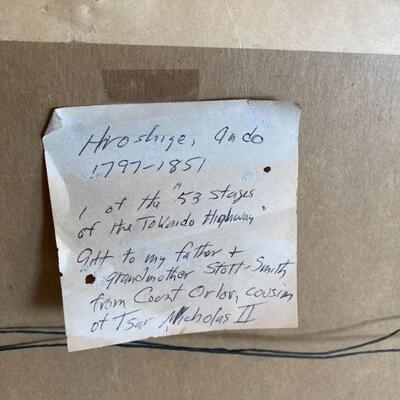 Hiroshige, Ando
1797-1851
1 of the "53 stages
of the Tokaido Highway"
Gift to my father +
grandmother Stott-Smith
from Count Orlov, cousin
of Tsar Nicholas II